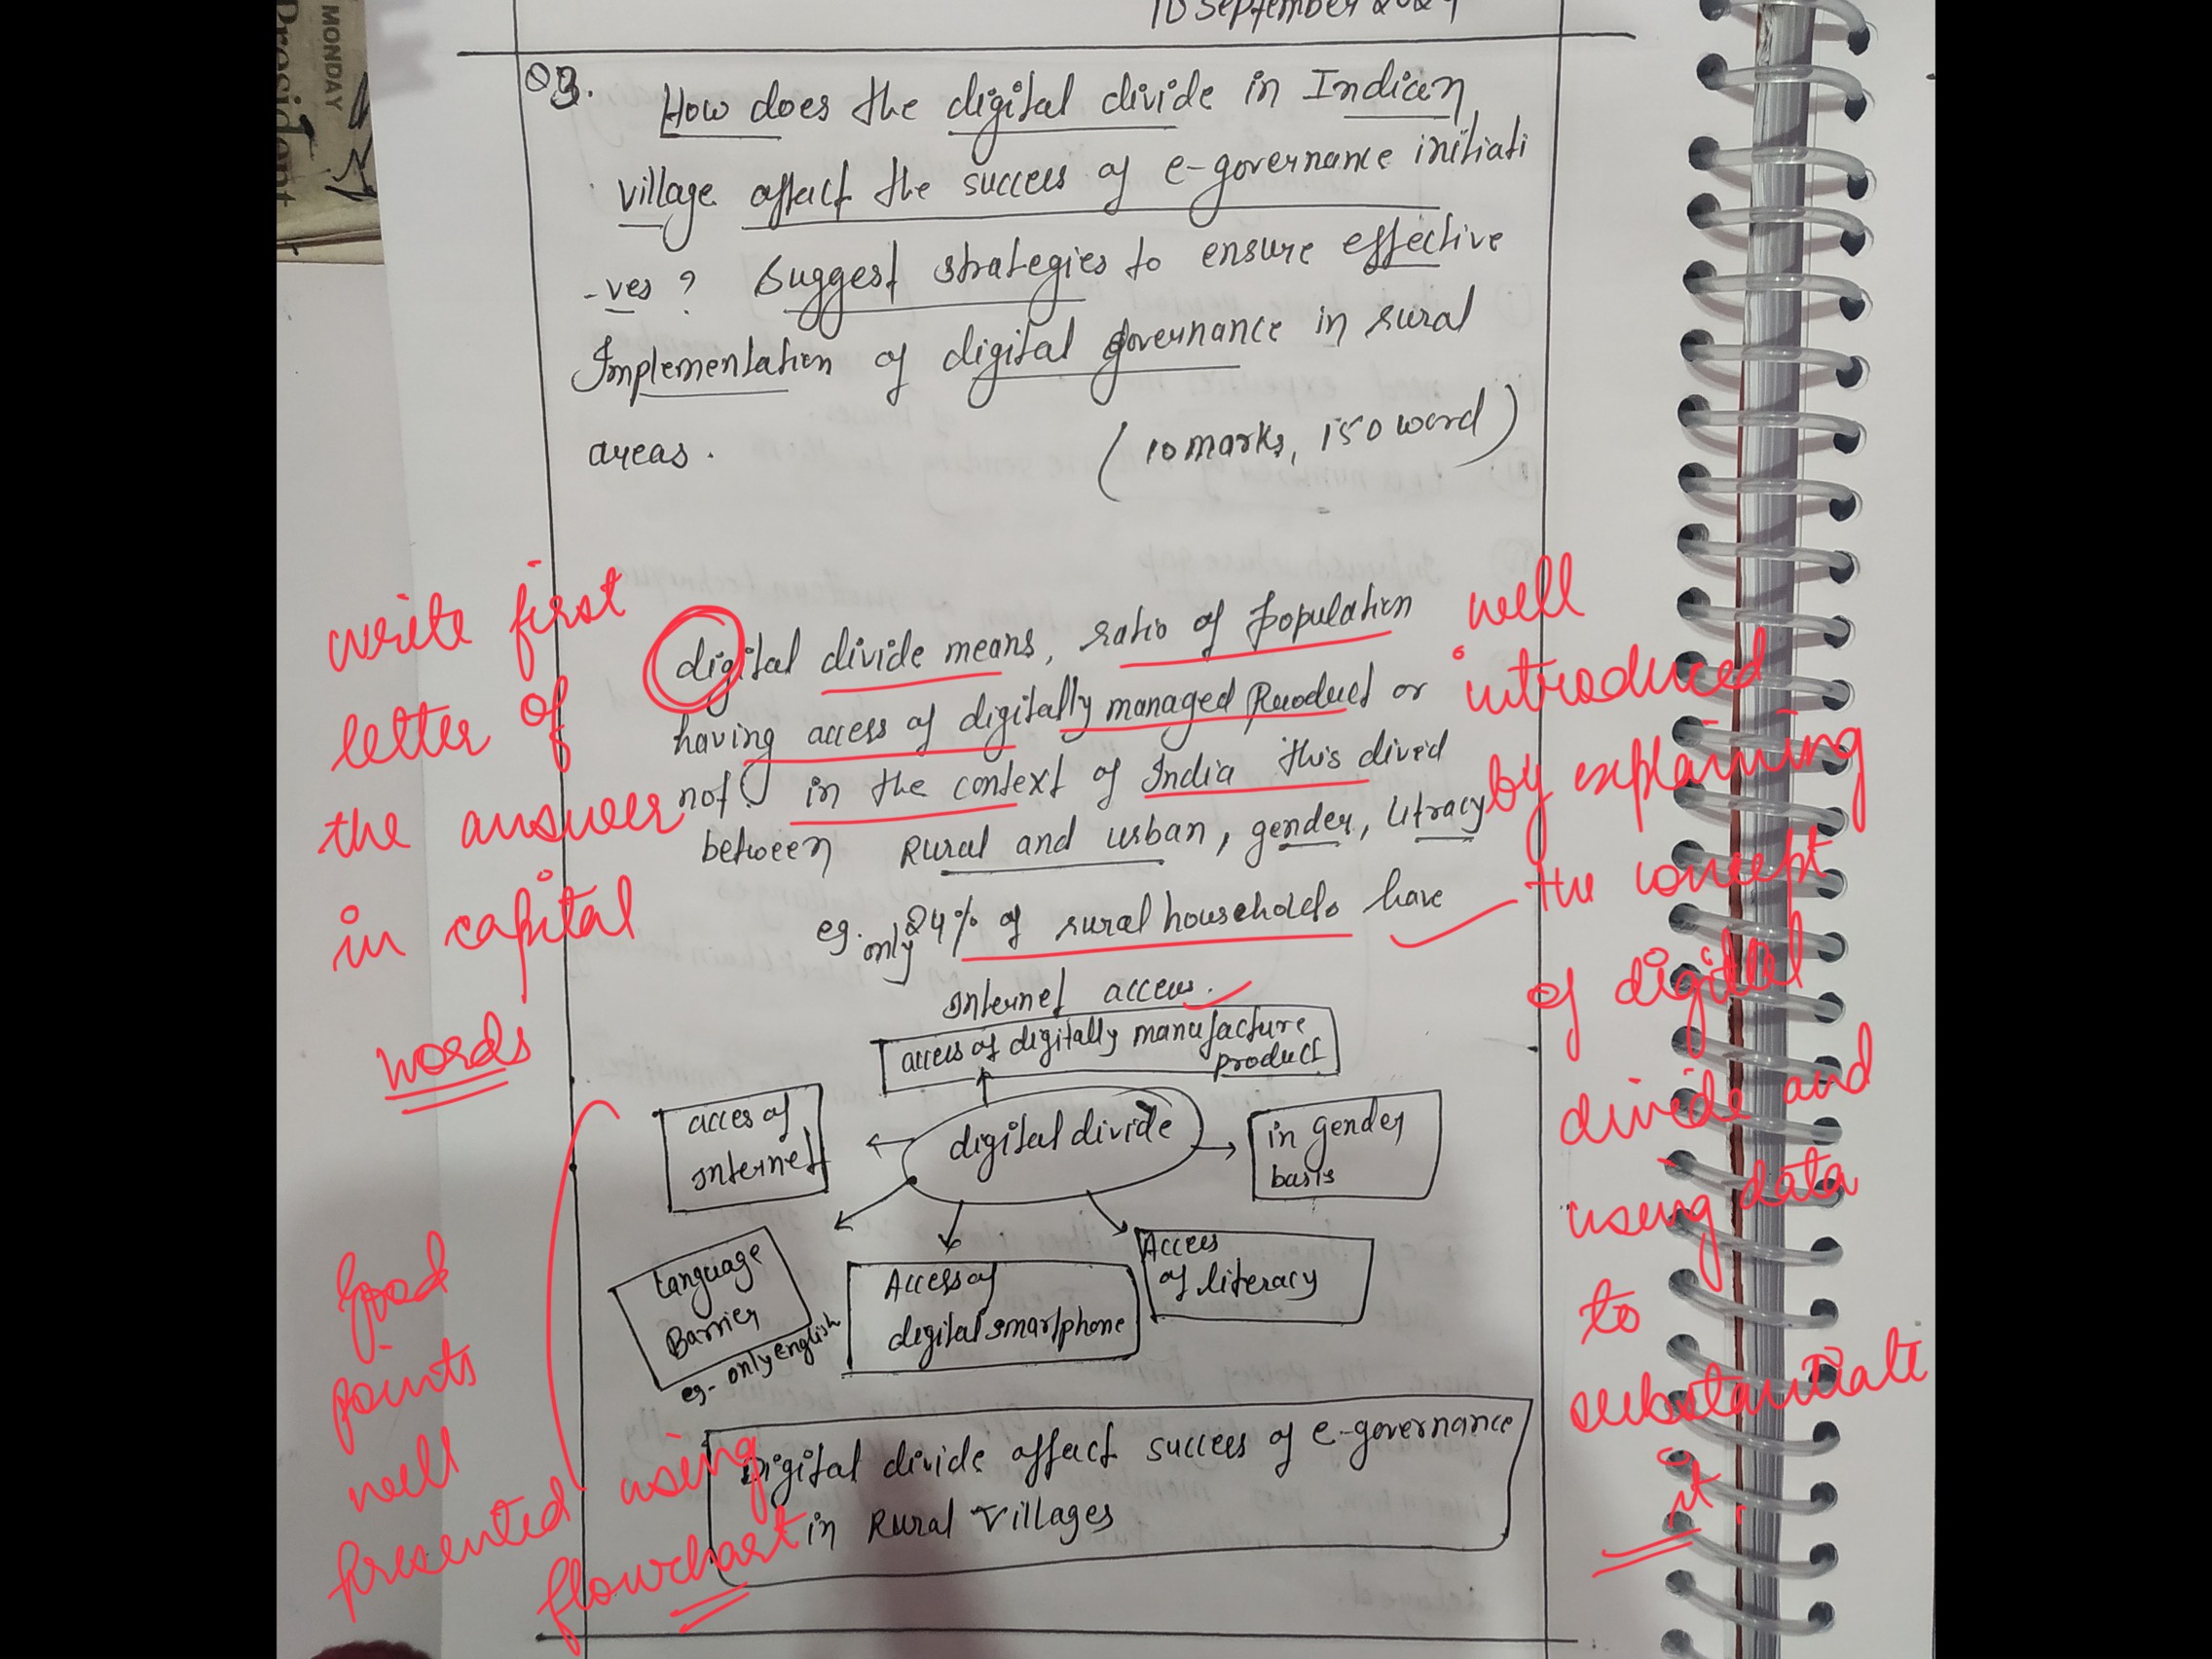 MONDAY
President
10 September 2024
Q3.
How does the digital divide in Indian
village affect the success of e-governance initiati
-ves ? Suggest strategies to ensure effective
Implementation of digital governance in rural
areas.
(10 marks, 150 word)
write first
letter of
the answer
in capital
words
digital divide means, ratio of population
having access of digitally managed Product or
not in the context of India this divid
between Rural and urban, gender, litracy
eg. only 24% of rural households have
Internet access.
well
introduced
by explaining
the concept
of digital
divide and
using data
to
substantiate
it.
access of digitally manufacture
product
acces of
Internet
digital divide
in gender
basis
Language
Barrier
eg- only english
Access of
digital smartphone
Access
of literacy
Good
points
well
presented using
flowchart
Digital divide affect success of e-governance
in Rural Villages